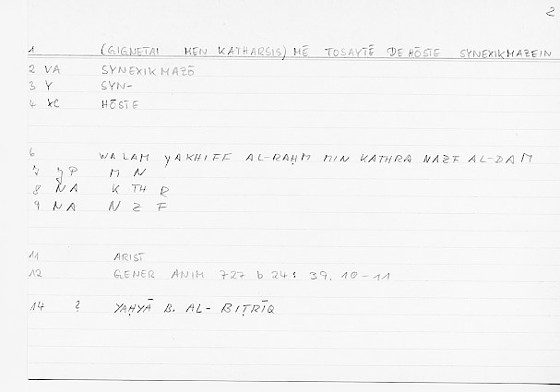 2
1 (GIGNETAI MEN KATHARSIS) MĒ TOSAUTĒ DE HŌSTE SYNEXIKMAZEIN
2 VA SYNEXIKMAZŌ
3 Y SYN-
4 XC HŌSTE
6 WA LAM YAKHIFF AL-RAḤM MIN KATHRA NAZF AL-DAM
7 YP M N
8 NA K TH R
9 NA N Z F
11 ARIST
12 GENER ANIM 727 b 24: 39.10-11
14 ? YAḤYĀ B. AL-BIṬRĪQ